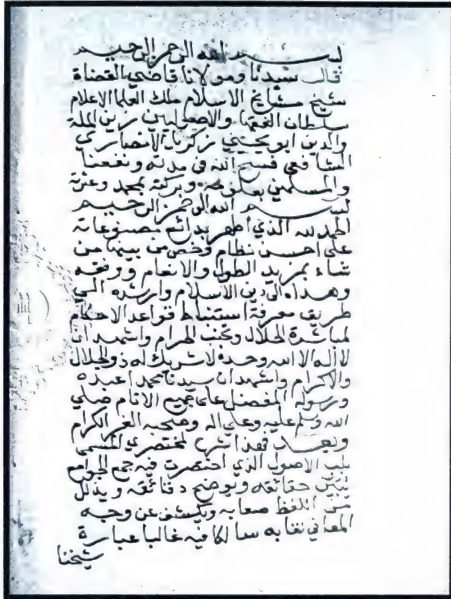 بسم الله الرحمن الرحيم
قال سيدنا ومولانا قاضي القضاة
شيخ مشايخ الاسلام ملك العلما الاعلام
سلطان الفقها والاصوليين زين الملة
والدين ابو يحيي زكريا الانصاري
الشافعي فسح الله في مدته ونفعنا
والمسلمين بعلومه وبركته بمحمد وعترته
بسم الله الرحمن الرحيم
الحمد لله الذي اظهر بدائع مصنوعاته
علي احسن نظام وخص من بينها من
شاء بمزيد الطول والانعام ووفقه
وهداه الي دين الاسلام وارشده الي
طريق معرفة استنباط قواعد الاحكام
لمباشرة الحلال وتجنب الحرام واشهد ان
لا اله الا الله وحده لا شريك له ذو الجلال
والاكرام واشهد ان سيدنا محمدا عبده
ورسوله المفضل علي جميع الانام صلي
الله وسلم عليه وعلي اله وصحبه الغر الكرام
وبعد فهذا شرح لمختصري المسمي
بلب الاصول الذي اختصرت فيه جمع الجوامع
يبين حقائقه ويوضح دقائقه ويذلل
من اللفظ صعابه ويكشف عن وجه
المعاني نقابه سالكا فيه غالبا عبارة
شيخنا